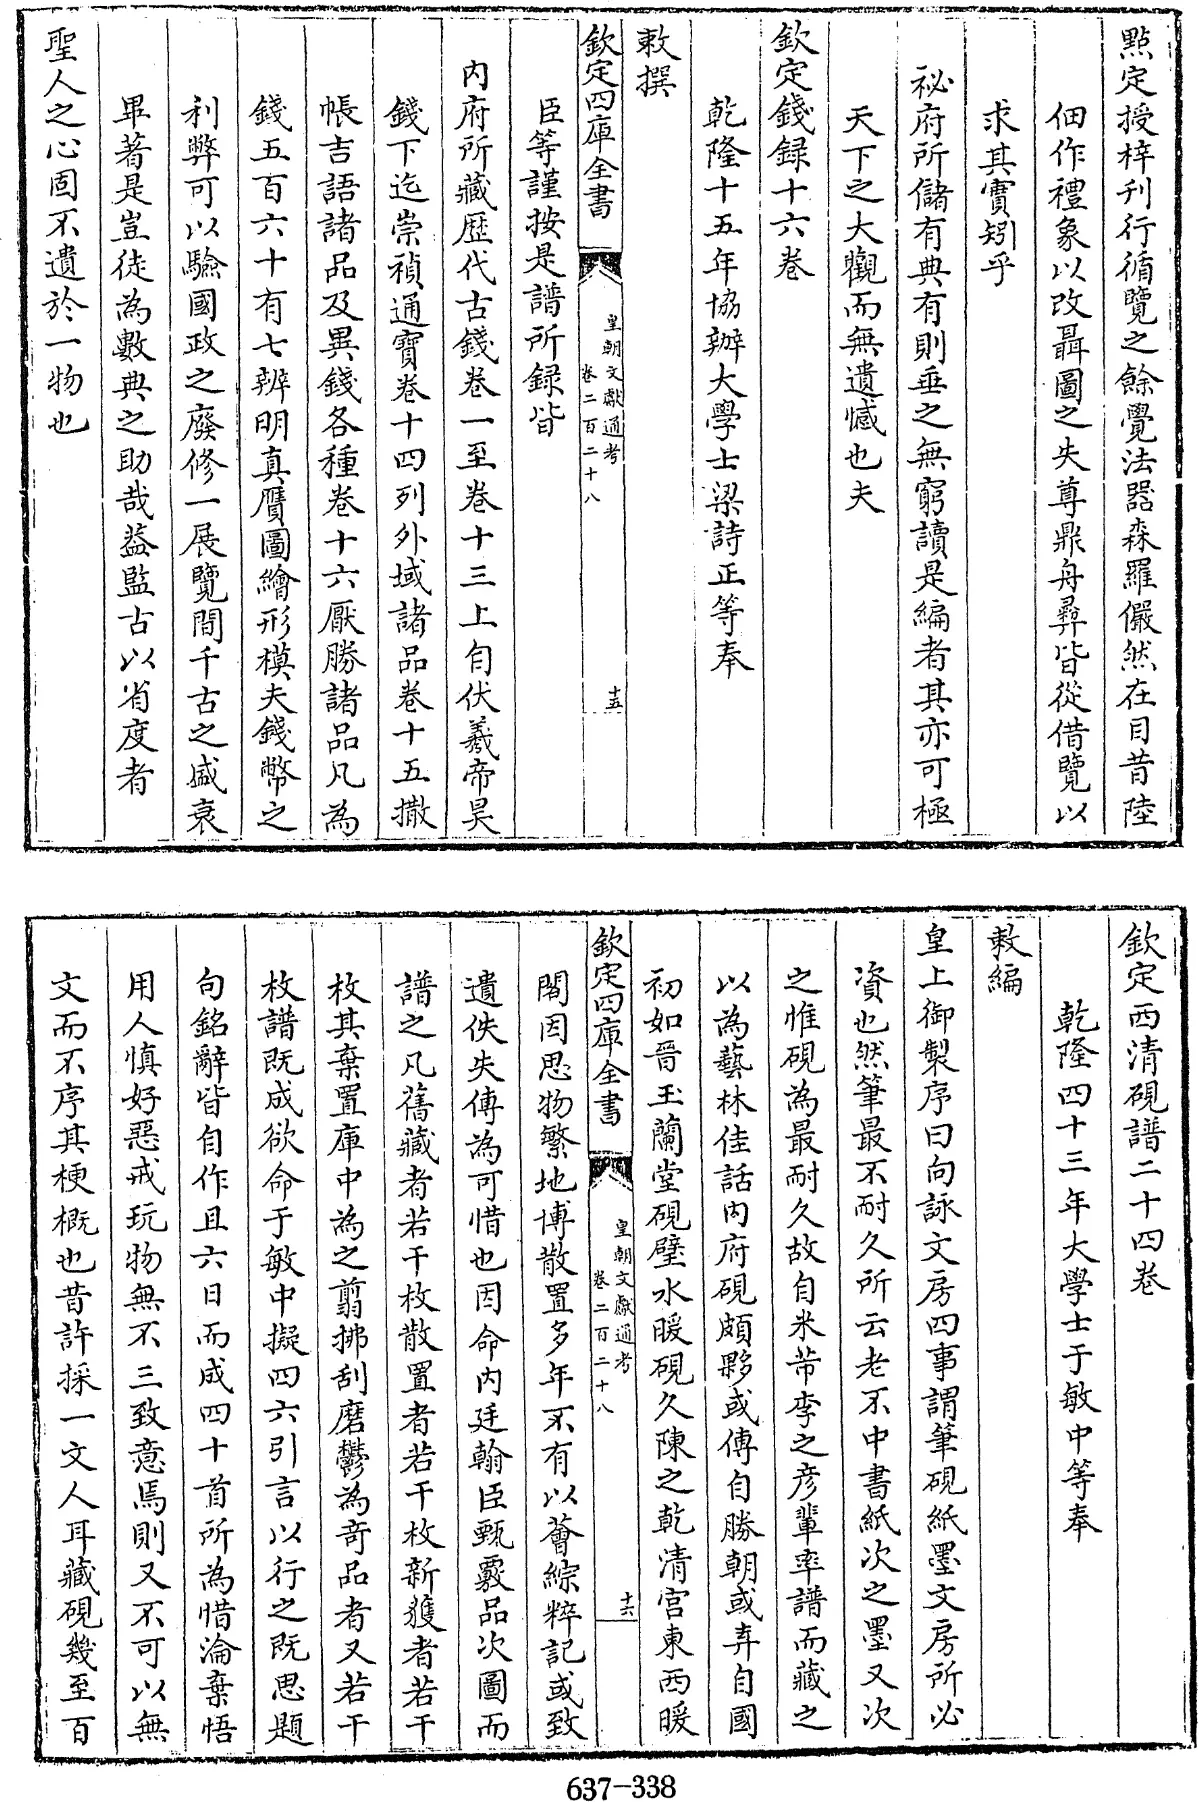 點定授梓刋行循覽之餘覺法器森羅儼然在目昔陸
佃作禮象以改聶圖之失尊鼎舟彞皆從借覽以
求其實矧乎
祕府所儲有典有則垂之無窮讀是編者其亦可極
天下之大觀而無遺憾也夫
欽定錢録十六卷
乾隆十五年協辦大學士梁詩正等奉
敕撰
欽定四庫全書
皇朝文獻通考
卷二百二十八
十五
臣等謹按是譜所録皆
内府所藏歴代古錢卷一至卷十三上自伏羲帝昊
錢下迄崇禎通寳卷十四列外域諸品卷十五撒
帳吉語諸品及異錢各種卷十六厭勝諸品凡為
錢五百六十有七辨明真贋圖繪形模夫錢幣之
利弊可以驗國政之廢修一展覽間千古之盛衰
畢著是豈徒為數典之助哉葢監古以省度者
聖人之心固不遺於一物也
欽定西清硯譜二十四卷
乾隆四十三年大學士于敏中等奉
敕編
皇上御製序曰向詠文房四事謂筆硯紙墨文房所必
資也然筆最不耐久所云老不中書紙次之墨又次
之惟硯為最耐久故自米芾李之彦輩率譜而藏之
以為藝林佳話内府硯頗夥或傳自勝朝或弆自國
初如晉玉蘭堂硯璧水暖硯久陳之乾清宫東西暖
欽定四庫全書
皇朝文獻通考
卷二百二十八
十六
閣因思物繁地博散置多年不有以薈綜粹記或致
遺佚失傳為可惜也因命内廷翰臣甄覈品次圖而
譜之凡舊藏者若干枚散置者若干枚新獲者若干
枚其棄置庫中為之翦拂刮磨鬱為竒品者又若干
枚譜既成欲命于敏中擬四六引言以行之既思題
句銘辭皆自作且六日而成四十首所為惜淪棄悟
用人慎好惡戒玩物無不三致意焉則又不可以無
文而不序其梗概也昔許採一文人耳藏硯幾至百
637-338